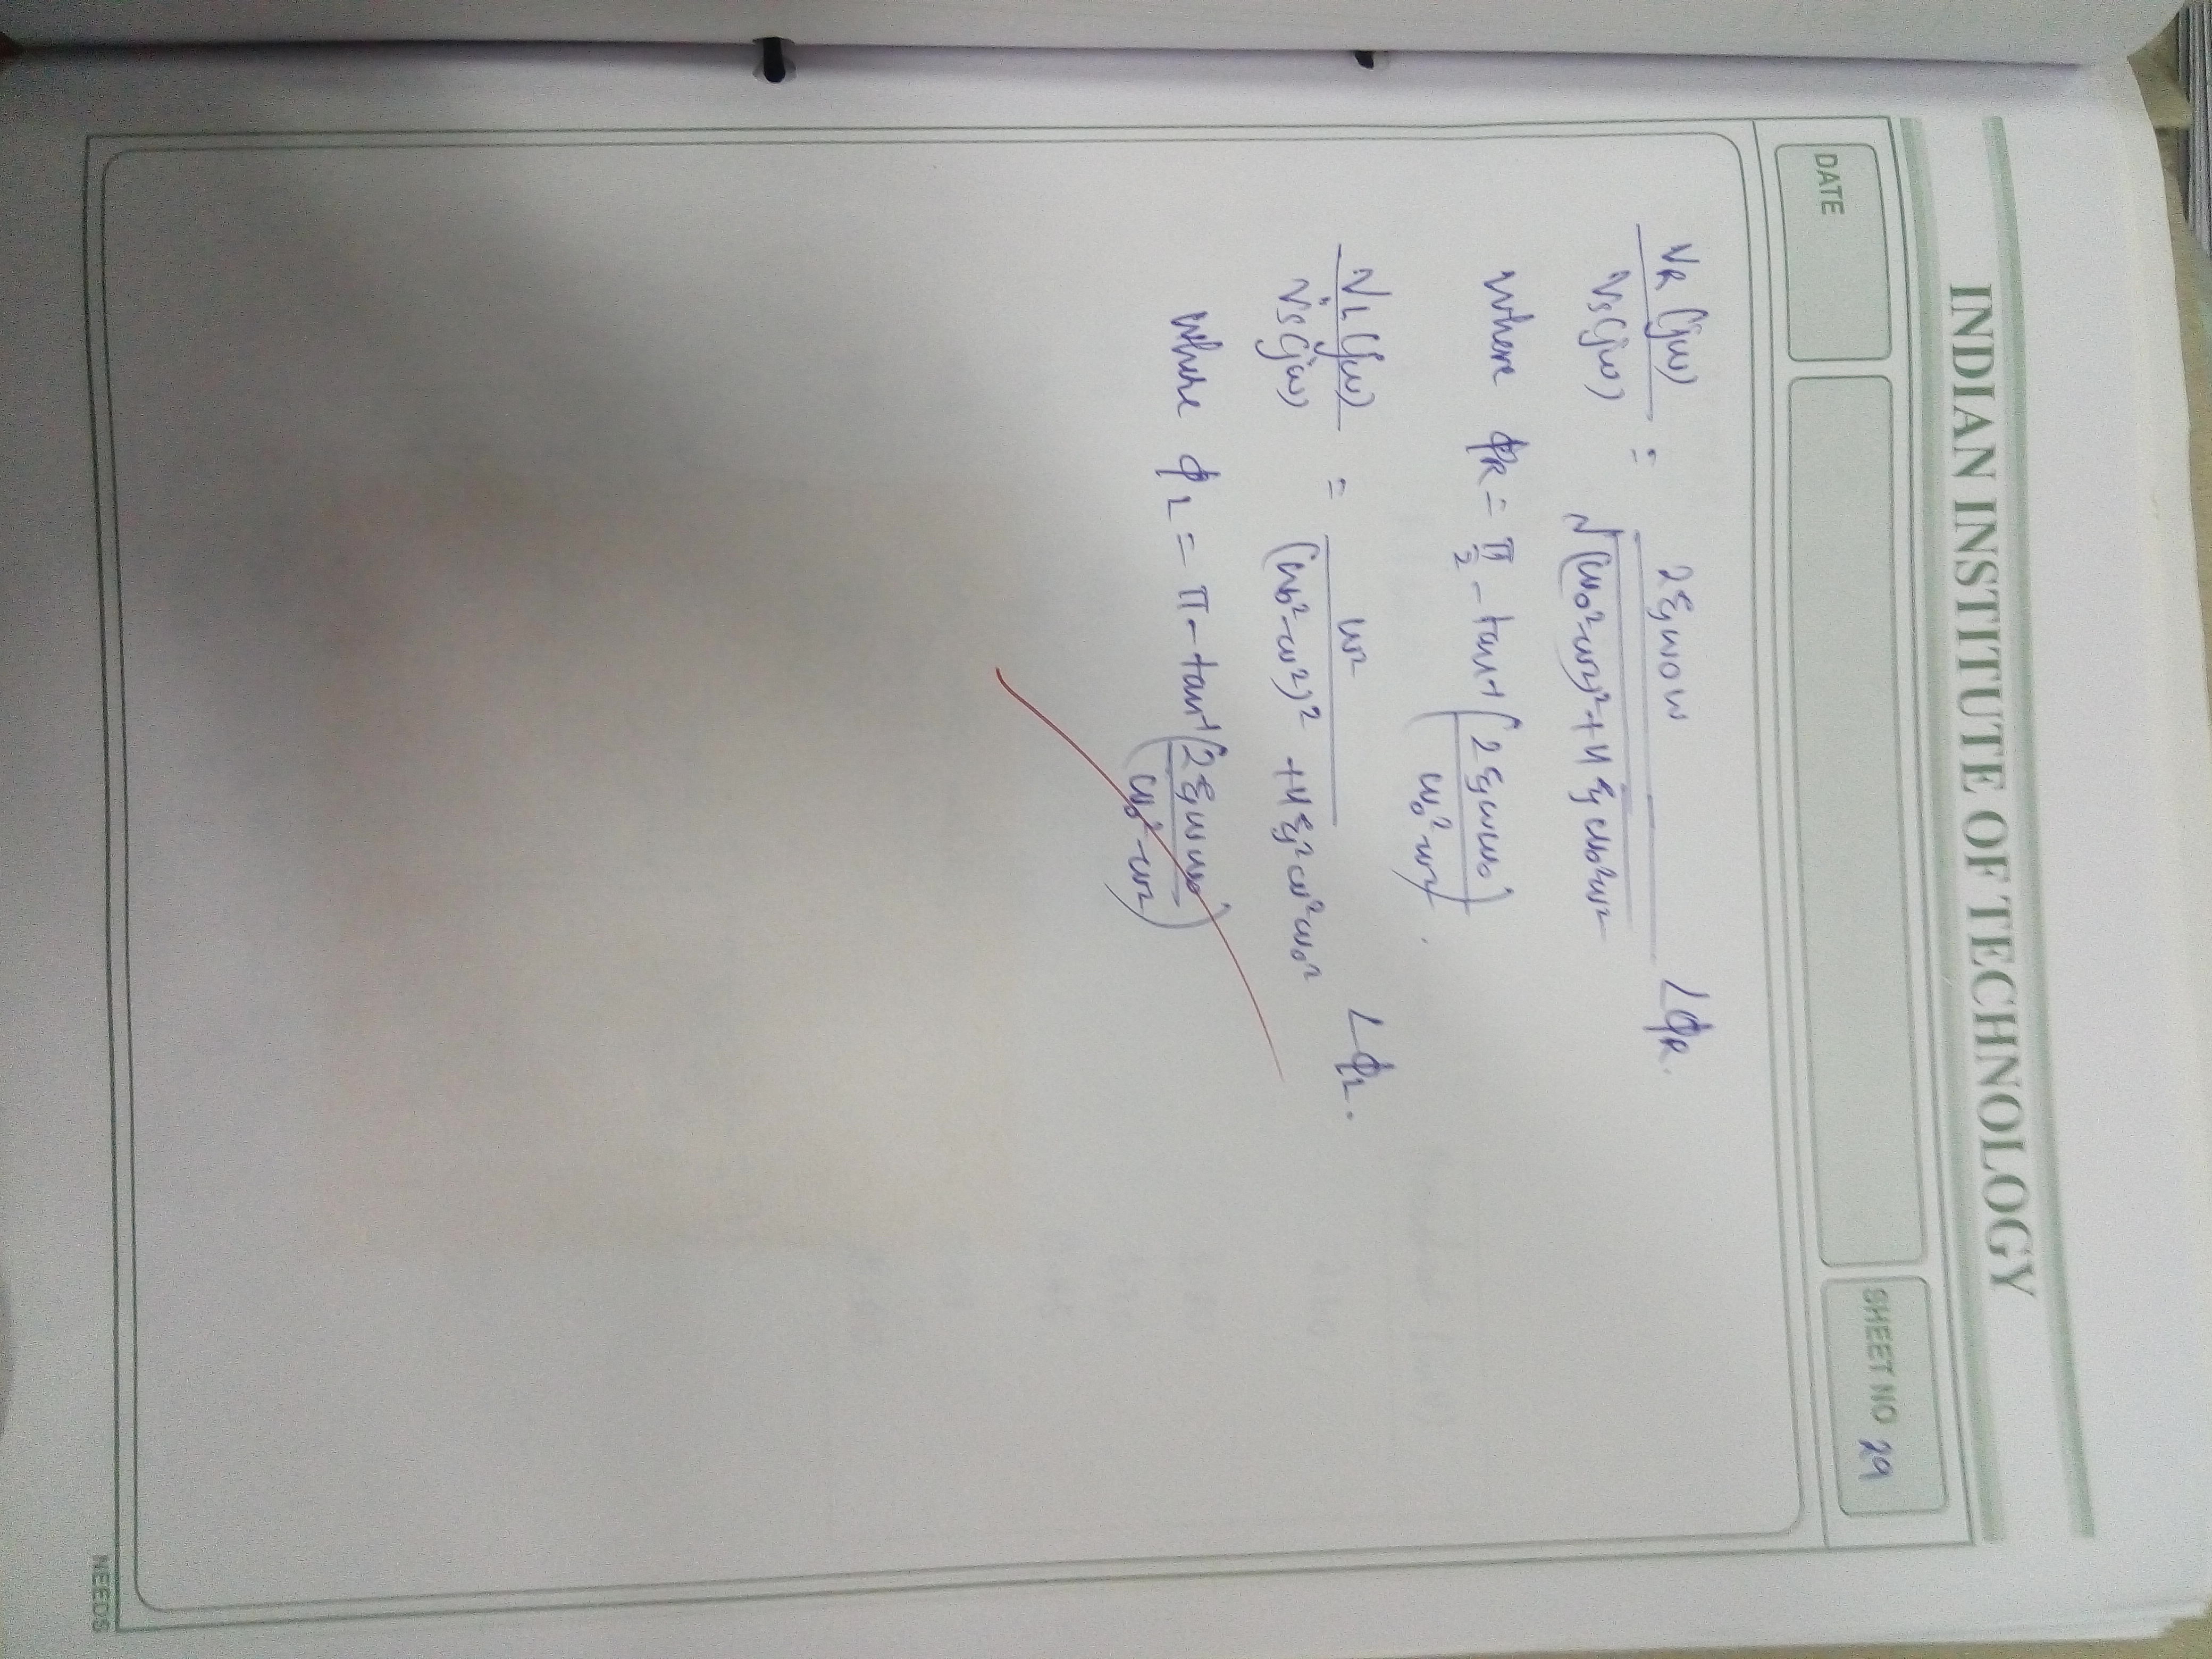 INDIAN INSTITUTE OF TECHNOLOGY
DATE
SHEET NO 29
VR(jω)/VS(jω) = 2ξω0ω / √((ω0²-ω²)²+4ξω0²ω²) ∠ϕR.
where ϕR = π/2 - tan⁻¹(2ξωω0 / ω0²-ω²).
VL(jω)/VS(jω) = ω² / (ω0²-ω²)² +4ξ²ω²ω0² ∠ϕL.
where ϕL = π - tan⁻¹(2ξωω0 / ω0²-ω²)
NEEDS